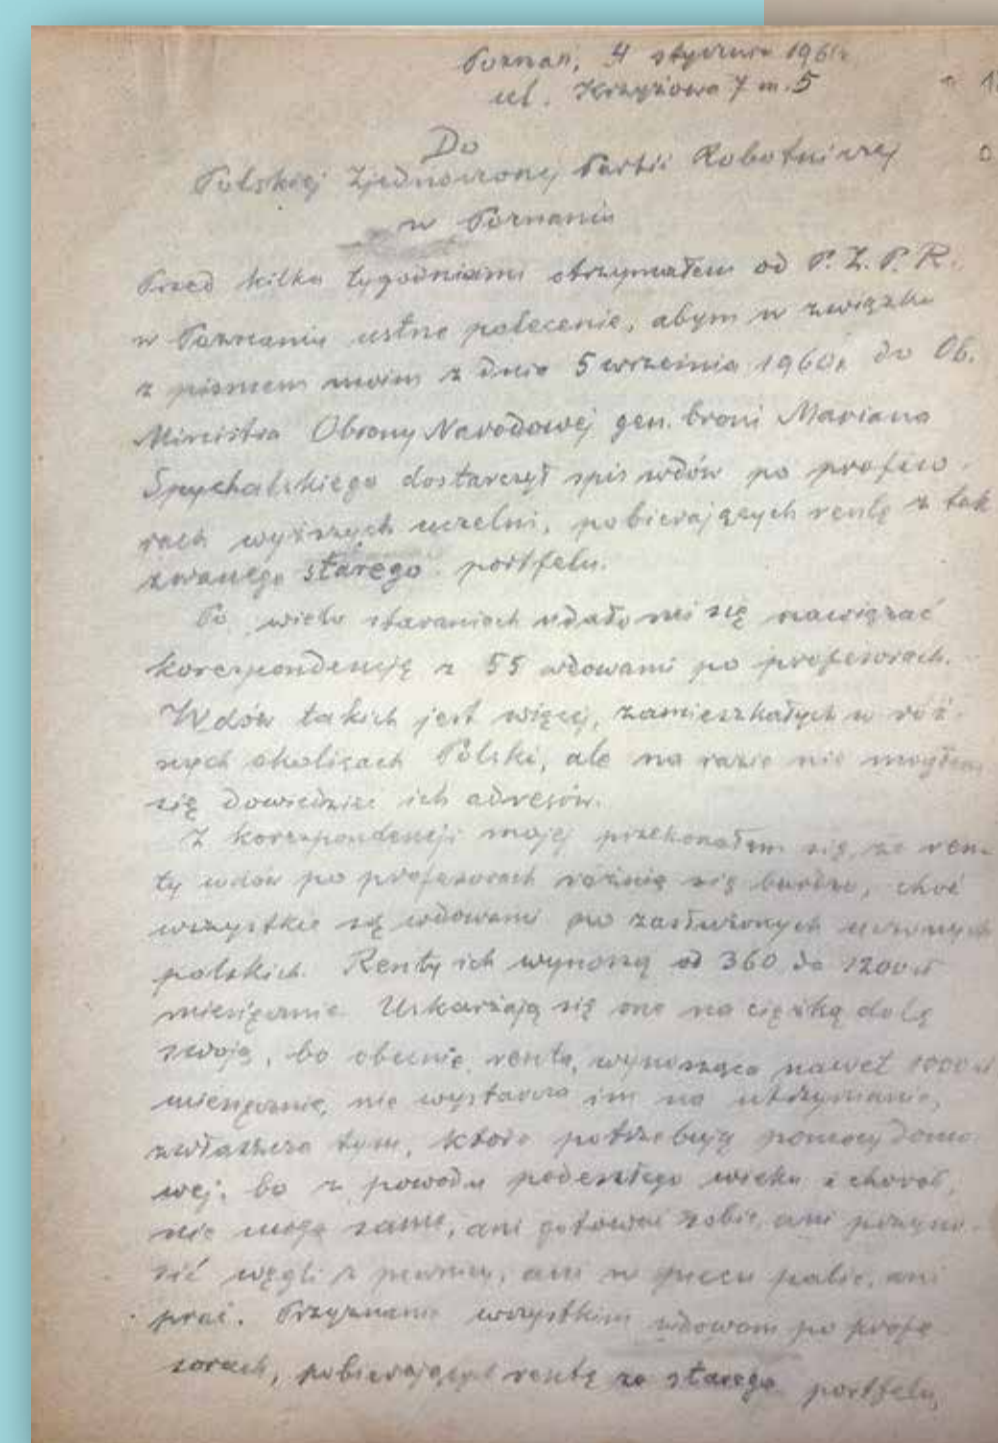 Poznań, 4 stycznia 1961r.
ul. Krzyżowa 7 m. 5
Do
Polskiej Zjednoczonej Partii Robotniczej
w Poznaniu
Przed kilku tygodniami otrzymałem od P. Z. P. R.
w Poznaniu ustne polecenie, abym w związku
z pismem moim z dnia 5 września 1960r. do Ob.
Ministra Obrony Narodowej gen. broni Mariana
Spychalskiego dostarczył spis wdów po profeso-
rach wyższych uczelni, pobierających rentę z tak
zwanego starego portfelu.
Po wielu staraniach udało mi się nawiązać
korespondencję z 55 wdowami po profesorach.
Wdów takich jest więcej, zamieszkałych w róż-
nych okolicach Polski, ale na razie nie mogłem
się dowiedzieć ich adresów.
Z korespondencji mojej przekonałem się, że ren-
ty wdów po profesorach różnią się bardzo, choć
wszystkie są wdowami po zasłużonych uczonych
polskich. Renty ich wynoszą od 360 do 1200 zł
miesięcznie. Uskarżają się one na ciężką dolę
swoją, bo obecnie renta, wynosząca nawet 1000 zł
miesięcznie, nie wystarcza im na utrzymanie,
zwłaszcza tym, które potrzebują pomocy domo-
wej, bo z powodu podeszłego wieku i chorób,
nie mogą same, ani gotować sobie, ani przyno-
sić węgli z piwnicy, ani w piecu palić, ani
prać. Przyznanie wszystkim wdowom po profe-
sorach, pobierającym rentę ze starego portfelu,